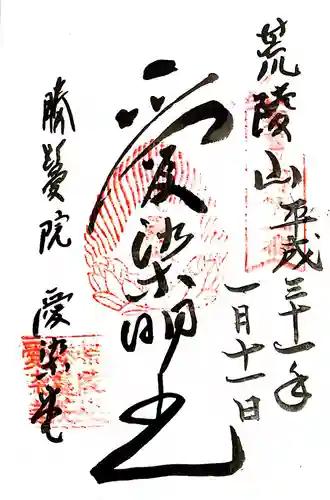 荒陵山 平成三十一年
一月十一日
愛染明王
勝鬘院 愛染堂